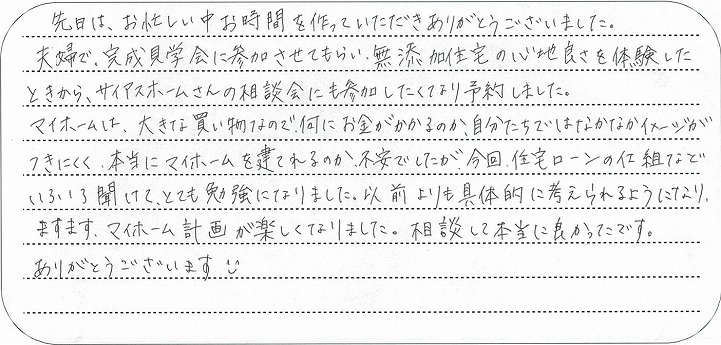 先日は、お忙しい中お時間を作っていただきありがとうございました。
夫婦で、完成見学会に参加させてもらい、無添加住宅の心地良さを体験した
ときから、サイアスホームさんの相談会にも参加したくなり予約しました。
マイホームは、大きな買い物なので、何にお金がかかるのか、自分たちではなかなかイメージが
つきにくく、本当にマイホームを建てれるのか、不安でしたが、今回、住宅ローンの仕組など
いろいろ聞けて、とても勉強になりました。以前よりも具体的に考えられるようになり、
ますます、マイホーム計画が楽しくなりました。相談して本当に良かったです。
ありがとうございます